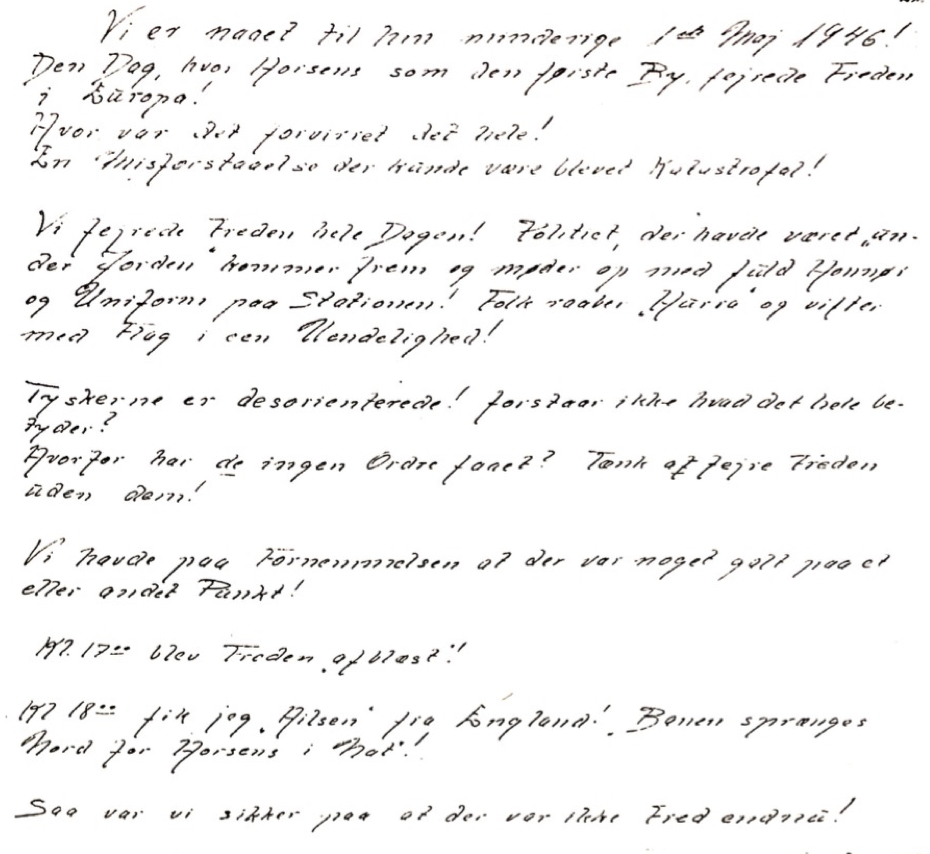 Vi er naaet til hin minderige 1ste Maj 1946!
Den Dag, hvor Horsens som den første By, fejrede Freden
i Europa!
Hvor var det forvirret det hele!
En Misforstaaelse der kunde være blevet Katastrofal!
Vi fejrede Freden hele Dagen! Politiet, der havde været „un-
der Jorden" kommer frem og møder op med fuld Honnør
og Uniform paa Stationen! Folk raaber „Hurra" og vifter
med Flag i een Uendelighed!
Tyskerne er desorienterede! forstaar ikke hvad det hele be-
tyder?
Hvorfor har de ingen Ordre faaet? Tænk at fejre Freden
uden dem!
Vi havde paa Fornemmelsen at der var noget galt paa et
eller andet Punkt!
Kl. 1700 blev Freden „afblæst"!
Kl 1800 fik jeg „Hilsen" fra England! „Banen sprænges
Nord for Horsens i Nat"!
Saa var vi sikker paa at der var ikke Fred endnu!